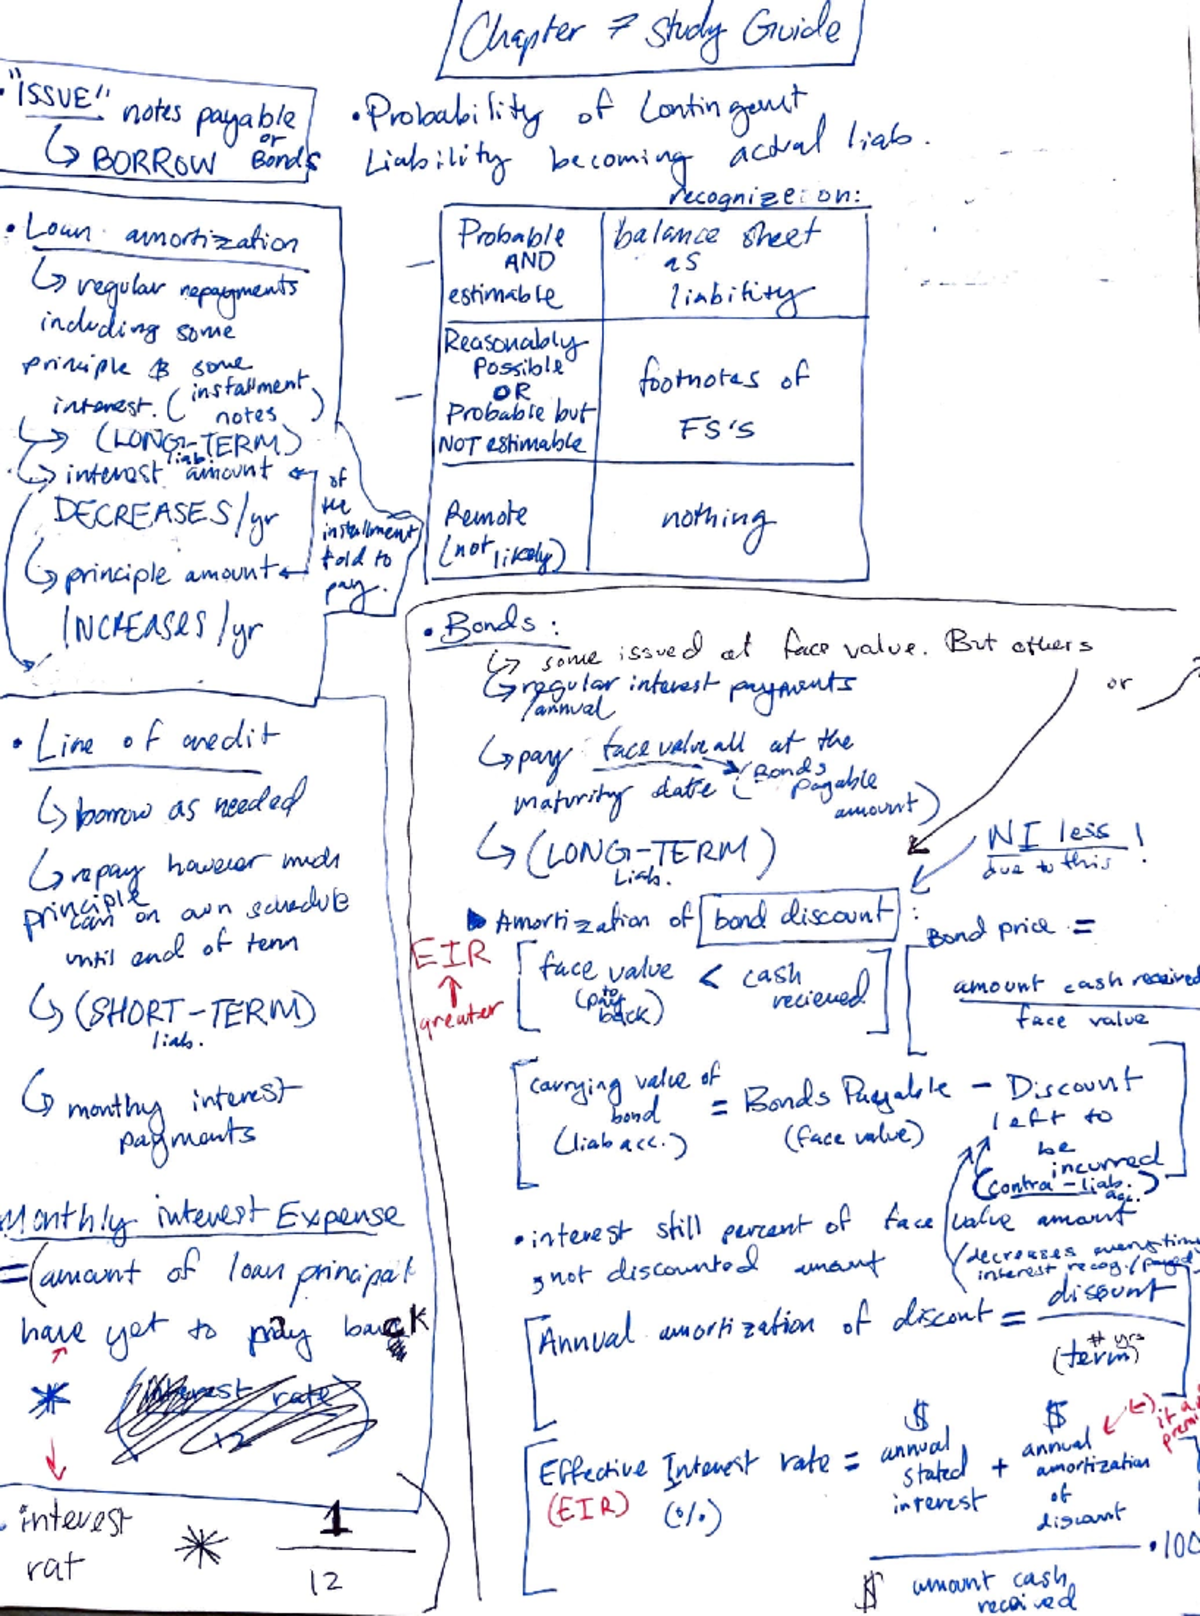 Chapter 7 Study Guide
• "ISSUE" notes payable
or
↳ BORROW Bonds
• Probability of Contingent
Liability becoming actual liab.
recognize on:
Probable
AND
estimable
balance sheet
as
liability
Reasonably
Possible
OR
Probable but
NOT estimable
footnotes of
FS's
Remote
(not likely)
nothing
• Loan amortization
↳ regular repayments
including some
principle & some
interest. (installment
notes)
↳ (LONG-TERM)
liab.
↳ interest amount
DECREASES/yr
↳ principle amount
INCREASES/yr
of
the
installment
told to
pay.
• Line of credit
↳ borrow as needed
↳ repay however much
principle
can on own schedule
until end of term
↳ (SHORT-TERM)
liab.
↳ monthly interest
payments
Monthly interest Expense
= (amount of loan principal
have yet to pay back
*
interest
rat * 1
12
• Bonds:
↳ some issued at face value. But others
or
↳ regular interest payments
/annual
↳ pay face value all at the
maturity date (Bonds
payable
amount)
↳ (LONG-TERM)
Liab.
NI less !
due to this
▶ Amortization of bond discount :
EIR
↑
greater
[face value < cash
(to pay
back)
recieved]
Bond price =
amount cash received
face value
[carrying value of
bond
(liab acc.)
= Bonds Payable - Discount
(face value)
left to
be
incurred
(contra-liab.
acc.)
• interest still percent of face value amount
, not discounted amount
decreases everytime
interest recog./payed
[Annual amortization of discont = discount
# yrs
(term)
[Effective Interest rate =
(EIR) (%)
$
annual
stated
interest
+
$
annual
amortization
of
discount
(-)
$ amount cash
received
• 100